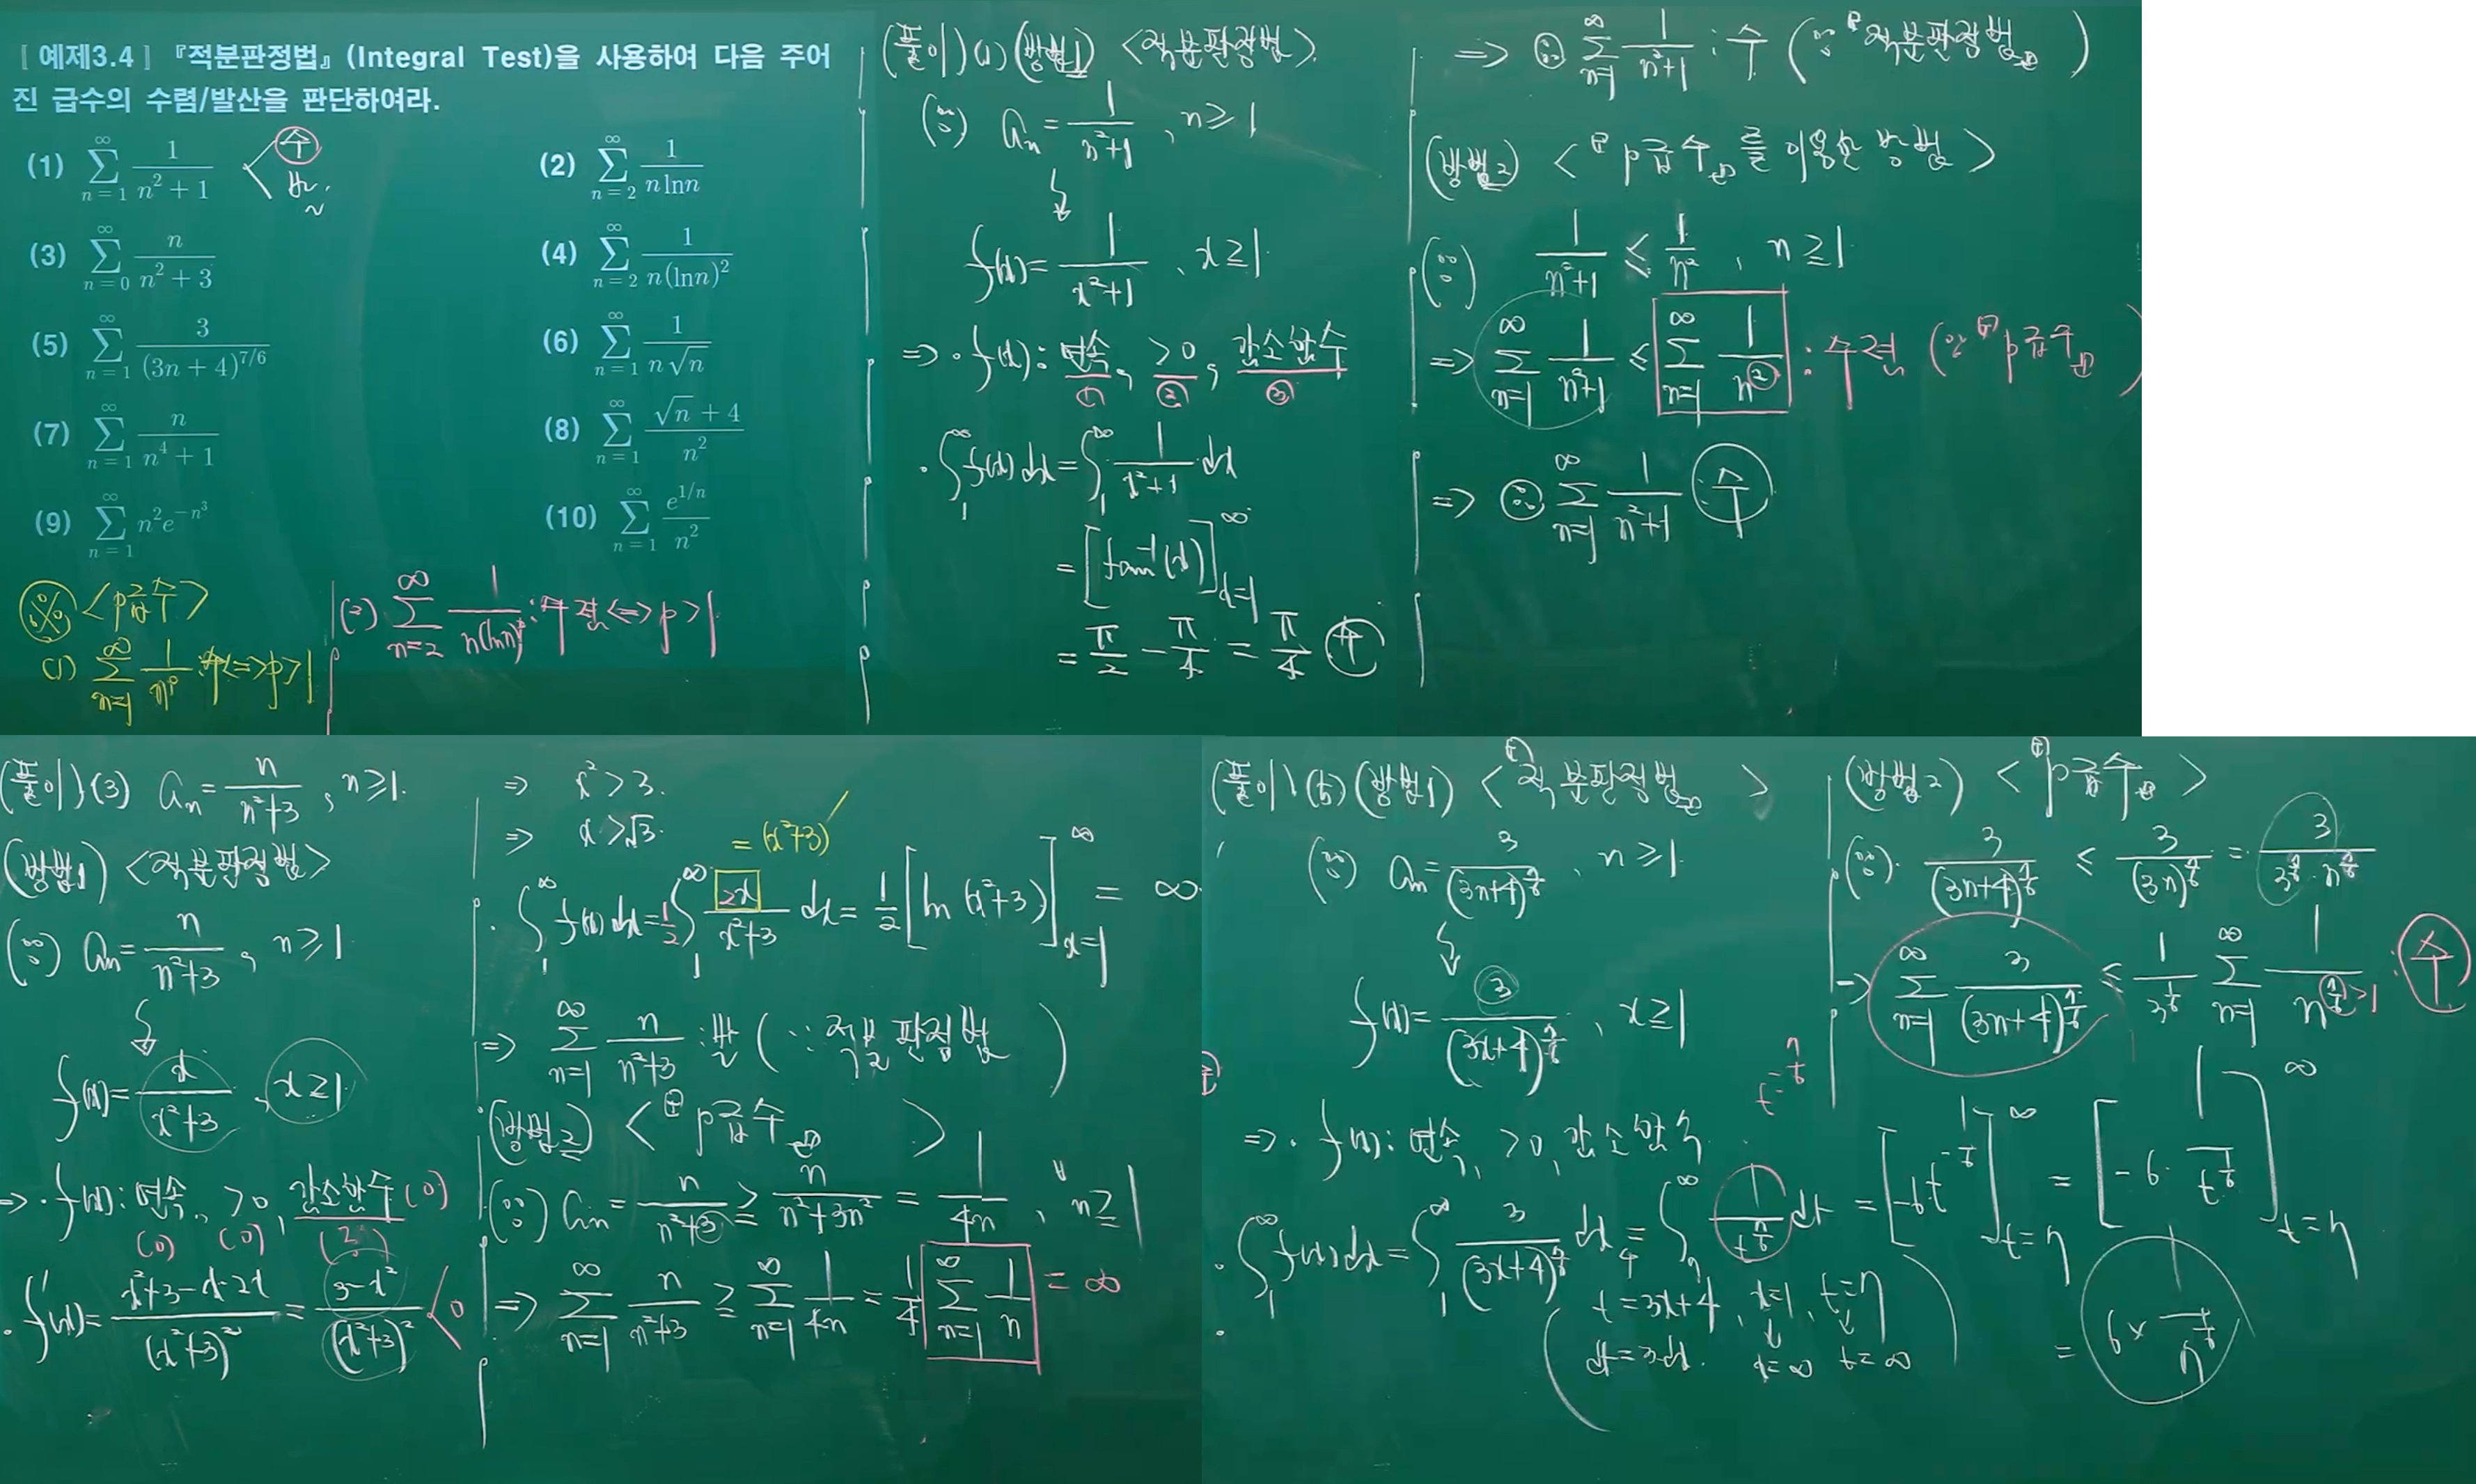 [ 예제3.4 ] 『적분판정법』(Integral Test)을 사용하여 다음 주어
진 급수의 수렴/발산을 판단하여라.
(1) ∑_{n=1}^{∞} 1/(n²+1) < 수 발.
(2) ∑_{n=2}^{∞} 1/(n ln n)
(3) ∑_{n=0}^{∞} n/(n²+3)
(4) ∑_{n=2}^{∞} 1/(n(ln n)²)
(5) ∑_{n=1}^{∞} 3/(3n+4)^{7/6}
(6) ∑_{n=1}^{∞} 1/(n√n)
(7) ∑_{n=1}^{∞} n/(n⁴+1)
(8) ∑_{n=1}^{∞} (√n+4)/n²
(9) ∑_{n=1}^{∞} n²e^{-n³}
(10) ∑_{n=1}^{∞} e^{1/n}/n²
※ <p급수>
(1) ∑_{n=1}^{∞} 1/n^p : 수 <=> p>1
(2) ∑_{n=2}^{∞} 1/(n(ln n)^p) : 수렴 <=> p>1
(풀이)(1)(방법1) <적분판정법>
(∵) a_n = 1/(n²+1), n≥1
f(x) = 1/(x²+1), x≥1
=> · f(x) : 연속, >0, 감소함수
① ② ③
· ∫_1^∞ f(x)dx = ∫_1^∞ 1/(x²+1) dx
= [tan⁻¹(x)]_{x=1}^{∞}
= π/2 - π/4 = π/4 수
=> ∴ ∑_{n=1}^{∞} 1/(n²+1) : 수 (∵ 『적분판정법』)
(방법2) <『p급수』를 이용한 방법>
(∵) 1/(n²+1) ≤ 1/n², n≥1
=> ∑_{n=1}^{∞} 1/(n²+1) ≤ ∑_{n=1}^{∞} 1/n² : 수렴 (∵『p급수』)
=> ∴ ∑_{n=1}^{∞} 1/(n²+1) : 수
(풀이)(3) a_n = n/(n²+3), n≥1.
(방법1) <적분판정법>
(∵) a_n = n/(n²+3), n≥1
f(x) = x/(x²+3), x≥1
=> · f(x) : 연속, >0, 감소함수(0)
(0) (0) (?)
· f'(x) = (x²+3-x·2x)/(x²+3)² = (3-x²)/(x²+3)² <0
=> x²>3.
=> x>√3.
= (x²+3)'
· ∫_1^∞ f(x)dx = 1/2 ∫_1^∞ 2x/(x²+3) dx = 1/2 [ln(x²+3)]_{x=1}^{∞} = ∞
=> ∑_{n=1}^{∞} n/(n²+3) : 발 (∵ 적분판정법)
(방법2) <『p급수』>
(∵) a_n = n/(n²+3) ≥ n/(n²+3n²) = 1/(4n), ∀n≥1
=> ∑_{n=1}^{∞} n/(n²+3) ≥ ∑_{n=1}^{∞} 1/(4n) = 1/4 ∑_{n=1}^{∞} 1/n = ∞
(풀이)(5)(방법1) <『적분판정법』>
(∵) a_n = 3/(3n+4)^{7/6}, n≥1
f(x) = 3/(3x+4)^{7/6}, x≥1
t^{-7/6}
=> · f(x) : 연속, >0, 감소함수
· ∫_1^∞ f(x)dx = ∫_1^∞ 3/(3x+4)^{7/6} dx = ∫_7^∞ 1/t^{7/6} dt = [-6t^{-1/6}]_{t=7}^{∞} = [-6·1/t^{1/6}]_{t=7}^{∞}
(t=3x+4, x=1, t=7
dt=3dx. x=∞ t=∞)
= 6×1/7^{1/6}
(방법2) <『p급수』>
(∵) · 3/(3n+4)^{7/6} ≤ 3/(3n)^{7/6} = 3/(3^{7/6}·n^{7/6})
=> ∑_{n=1}^{∞} 3/(3n+4)^{7/6} ≤ 1/3^{1/6} ∑_{n=1}^{∞} 1/n^{7/6 >1} : 수